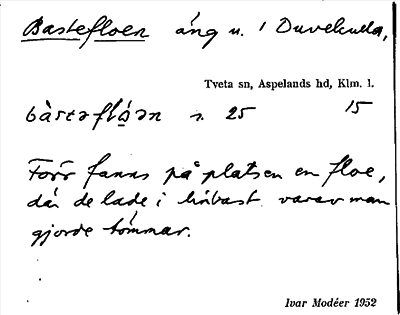 Bastefloen äng u. 1 Duvekulla,
Tveta sn, Aspelands hd, Klm. l.
bàstəflo̱ən s. 25 15
Förr fanns på platsen en floe,
där de lade i linbast varav man
gjorde tömmar.
Ivar Modéer 1952